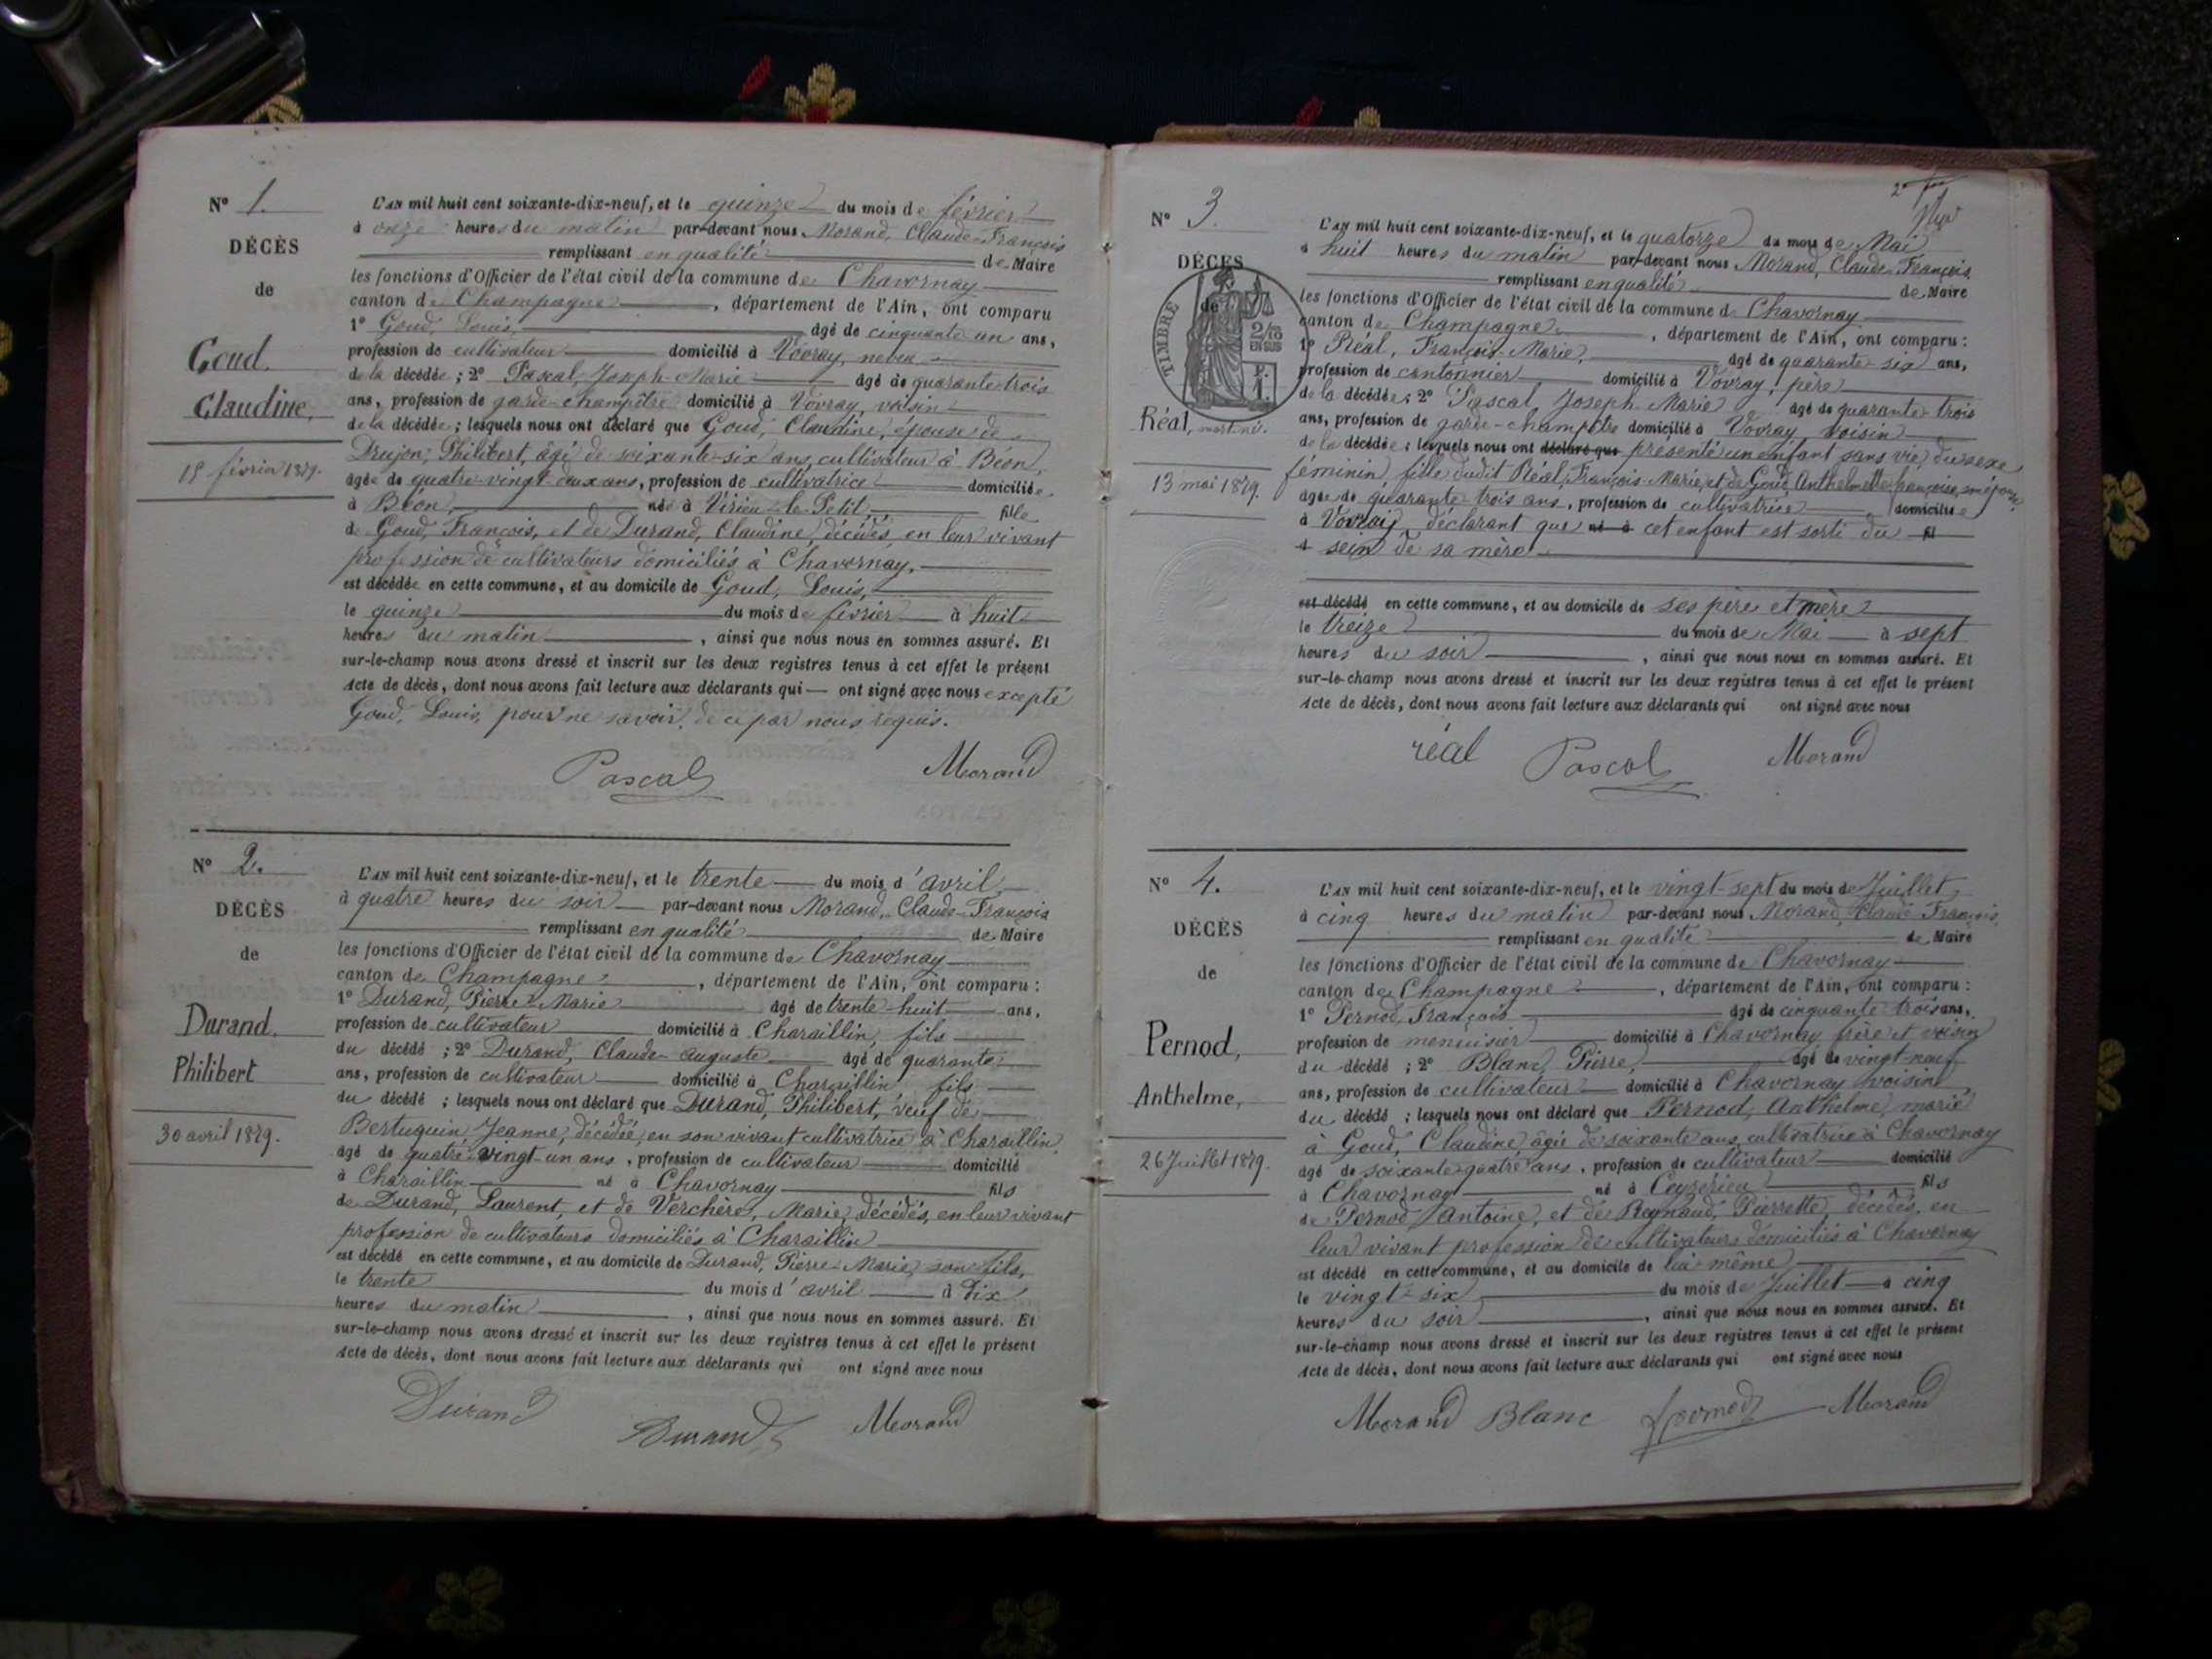 N° 1.
DÉCÈS
de
Goud,
Claudine,
15 février 1879.
L'AN mil huit cent soixante-dix-neuf, et le quinze du mois de février
à onze heures du matin par-devant nous Morand, Claude-François
remplissant en qualité de Maire
les fonctions d'Officier de l'état civil de la commune de Chavornay
canton de Champagne, département de l'Ain, ont comparu
1° Goud, Louis, âgé de cinquante un ans,
profession de cultivateur domicilié à Vovray, neveu
de la décédée ; 2° Pascal, Joseph-Marie âgé de quarante-trois
ans, profession de garde-champêtre domicilié à Vovray, voisin
de la décédée ; lesquels nous ont déclaré que Goud, Claudine, épouse de
Drujon, Philibert, âgé de soixante-six ans, cultivateur à Béon,
âgée de quatre-vingt-deux ans, profession de cultivatrice domiciliée
à Béon, née à Virieu-le-Petit, fille
de Goud, François, et de Durand, Claudine, décédés, en leur vivant
profession de cultivateurs domiciliés à Chavornay,
est décédée en cette commune, et au domicile de Goud, Louis,
le quinze du mois de février à huit
heures du matin, ainsi que nous nous en sommes assuré. Et
sur-le-champ nous avons dressé et inscrit sur les deux registres tenus à cet effet le présent
Acte de décès, dont nous avons fait lecture aux déclarants qui — ont signé avec nous excepté
Goud, Louis, pour ne savoir, de ce par nous requis.
Pascal Morand
N° 2.
DÉCÈS
de
Durand,
Philibert
30 avril 1879.
L'AN mil huit cent soixante-dix-neuf, et le trente du mois d'avril,
à quatre heures du soir par-devant nous Morand, Claude-François
remplissant en qualité de Maire
les fonctions d'Officier de l'état civil de la commune de Chavornay
canton de Champagne, département de l'Ain, ont comparu :
1° Durand, Pierre-Marie âgé de trente-huit ans,
profession de cultivateur domicilié à Charaillin, fils
du décédé ; 2° Durand, Claude-Auguste âgé de quarante
ans, profession de cultivateur domicilié à Charaillin fils
du décédé ; lesquels nous ont déclaré que Durand, Philibert, veuf de
Bertuquin Jeanne, décédée, en son vivant cultivatrice à Charaillin,
âgé de quatre-vingt-un ans, profession de cultivateur domicilié
à Charaillin né à Chavornay fils
de Durand, Laurent, et de Verchère, Marie, décédés, en leur vivant
profession de cultivateurs domiciliés à Charaillin
est décédé en cette commune, et au domicile de Durand, Pierre-Marie, son fils,
le trente du mois d'avril à dix
heures du matin, ainsi que nous nous en sommes assuré. Et
sur-le-champ nous avons dressé et inscrit sur les deux registres tenus à cet effet le présent
Acte de décès, dont nous avons fait lecture aux déclarants qui ont signé avec nous
Durand Durand Morand
N° 3.
DÉCÈS
de
TIMBRE
2/10
EN SUS
Réal, mort-né.
13 mai 1879.
L'AN mil huit cent soixante-dix-neuf, et le quatorze du mois de Mai
à huit heures du matin par-devant nous Morand, Claude-François
remplissant en qualité de Maire
les fonctions d'Officier de l'état civil de la commune d Chavornay
canton de Champagne, département de l'Ain, ont comparu :
1° Réal, François-Marie, âgé de quarante-six ans,
profession de cantonnier domicilié à Vovray, père
de la décédée ; 2° Pascal, Joseph-Marie âgé de quarante-trois
ans, profession de garde-champêtre domicilié à Vovray, voisin
de la décédée ; lesquels nous ont déclaré que présenté un enfant sans vie, du sexe
féminin, fille dudit Réal, François-Marie, et de Goud Anthelmette-françoise, son épouse,
âgée de quarante-trois ans, profession de cultivatrice domiciliée
à Vovray, déclarant que né à cet enfant est sorti du fil
d sein de sa mère
est décédé en cette commune, et au domicile de ses père et mère
le treize du mois de Mai à sept
heures du soir, ainsi que nous nous en sommes assuré. Et
sur-le-champ nous avons dressé et inscrit sur les deux registres tenus à cet effet le présent
Acte de décès, dont nous avons fait lecture aux déclarants qui ont signé avec nous
réal Pascal Morand
N° 4.
DÉCÈS
de
Pernod,
Anthelme,
26 Juillet 1879.
L'AN mil huit cent soixante-dix-neuf, et le vingt-sept du mois de Juillet
à cinq heures du matin par-devant nous Morand, Claude-François,
remplissant en qualité de Maire
les fonctions d'Officier de l'état civil de la commune de Chavornay
canton de Champagne, département de l'Ain, ont comparu :
1° Pernod, François âgé de cinquante-trois ans,
profession de menuisier domicilié à Chavornay frère et voisin
du décédé ; 2° Blanc, Pierre, âgé de vingt-neuf
ans, profession de cultivateur domicilié à Chavornay voisin
du décédé ; lesquels nous ont déclaré que Pernod, Anthelme, marié
à Goud, Claudine, âgée de soixante ans, cultivatrice à Chavornay
âgé de soixante-quatre ans, profession de cultivateur domicilié
à Chavornay né à Ceyzérieu fils
de Pernod Antoine, et de Reynaud, Pierrette, décédés, en
leur vivant profession de cultivateurs domiciliés à Chavornay
est décédé en cette commune, et au domicile de lui-même,
le vingt-six du mois de Juillet à cinq
heures du soir, ainsi que nous nous en sommes assuré. Et
sur-le-champ nous avons dressé et inscrit sur les deux registres tenus à cet effet le présent
Acte de décès, dont nous avons fait lecture aux déclarants qui ont signé avec nous
Morand Blanc Pernod Morand